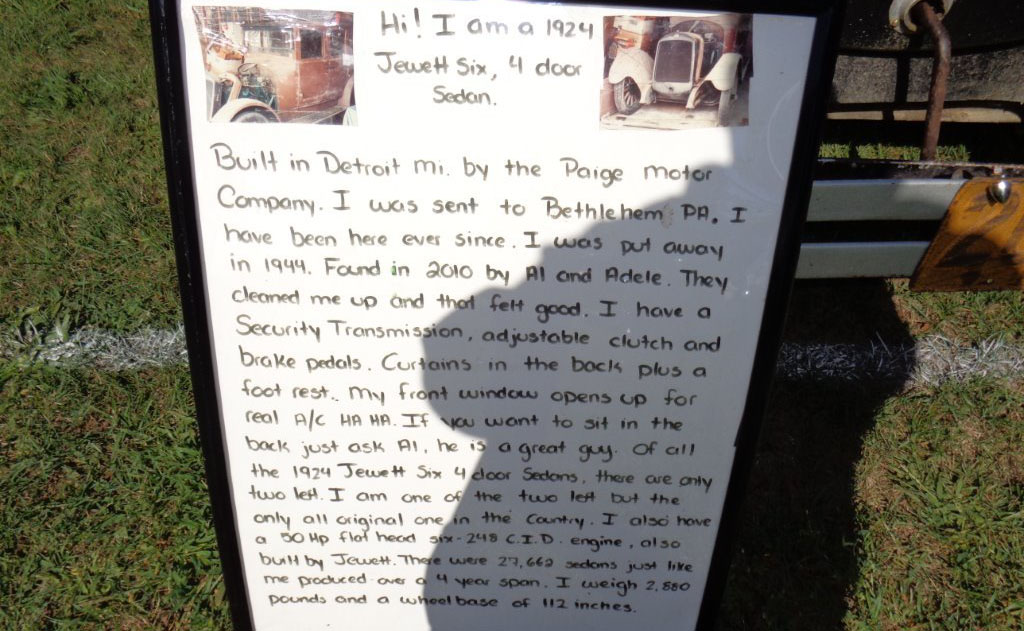 Hi! I am a 1924
Jewett Six, 4 door
Sedan.
Built in Detroit Mi. by the Paige Motor
Company. I was sent to Bethlehem PA. I
have been here ever since. I was put away
in 1944. Found in 2010 by Al and Adele. They
cleaned me up and that felt good. I have a
Security Transmission, adjustable clutch and
brake pedals. Curtains in the back plus a
foot rest. My front window opens up for
real A/C HA HA. If you want to sit in the
back just ask Al, he is a great guy. Of all
the 1924 Jewett Six 4 door Sedans, there are only
two left. I am one of the two left but the
only all original one in the Country. I also have
a 50 Hp flat head six-248 C.I.D. engine, also
built by Jewett. There were 27,662 sedans just like
me produced over a 4 year span. I weigh 2,880
pounds and a wheel base of 112 inches.